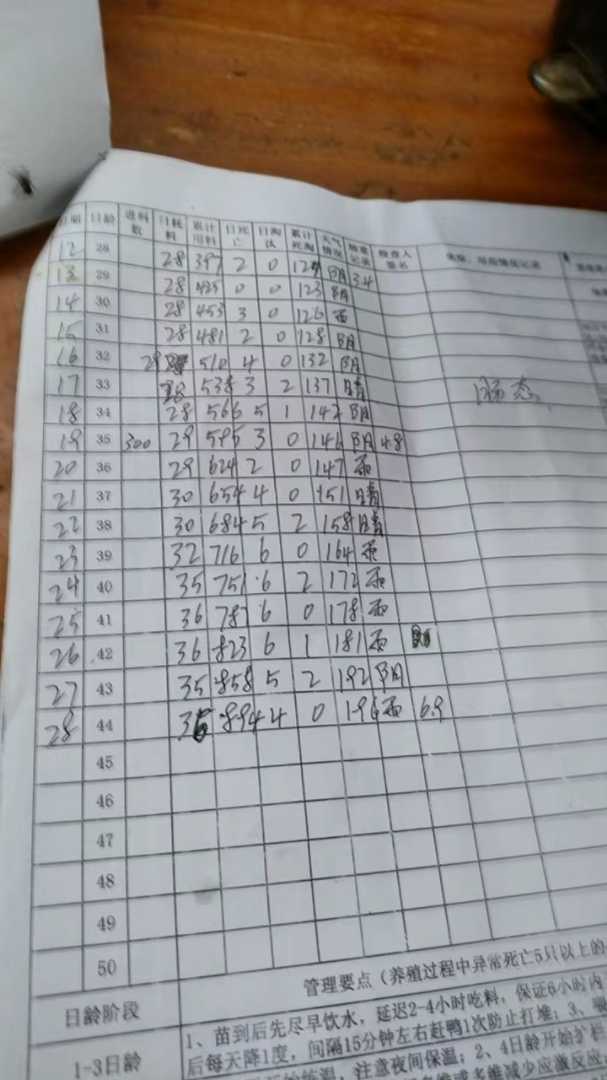 日期 日龄 进料数 日耗料 累计用料 日死亡 日淘汰 累计死淘 天气情况 称重记录 检查人签名
12 28 28 397 2 0 阴 3.4
13 29 28 425 0 0 123 阴
14 30 28 453 3 0 126 雨
15 31 28 481 2 0 128 阴
16 32 29 510 4 0 132 阴
17 33 28 538 3 2 137 晴
18 34 28 566 5 1 143 阴
19 35 300 29 595 3 0 146 阴 4.8
20 36 29 624 2 0 147 雨
21 37 30 654 4 0 151 晴
22 38 30 684 5 2 158 晴
23 39 32 716 6 0 164 雨
24 40 35 751 6 2 172 雨
25 41 36 787 6 0 178 雨
26 42 36 823 6 1 181 雨
27 43 35 858 5 2 192 阴
28 44 36 894 4 0 196 雨 6.9
45
46
47
48
49
50
管理要点（养殖过程中异常死亡5只以上的
日龄阶段
1-3日龄
1、苗到后先尽早饮水，延迟2-4小时吃料，保证6小时内
后每天降1度，间隔15分钟左右赶鸭1次防止打堆；3、
注意夜间保温；2、4日龄开始扩栏